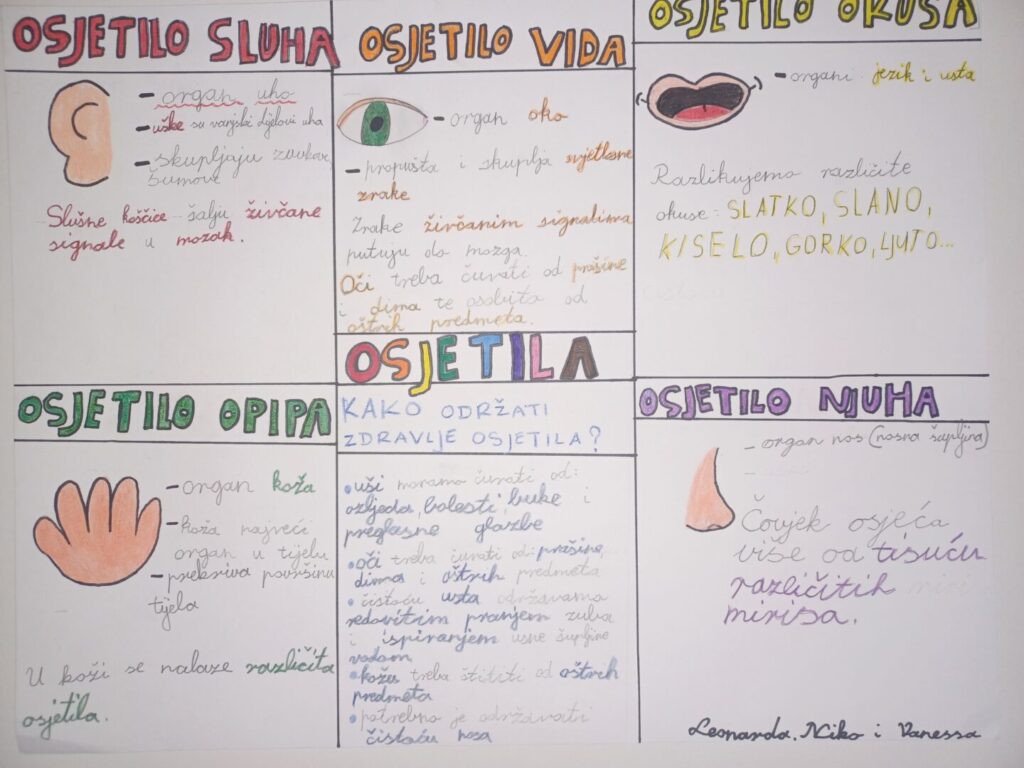 OSJETILO SLUHA
- organ uho
- uške su vanjski dijelovi uha
- skupljaju zvukove,
šumove
Slušne koščice šalju živčane
signale u mozak.
OSJETILO VIDA
- organ oko
- propušta i skuplja svjetlosne
zrake
Zrake živčanim signalima
putuju do mozga.
Oči treba čuvati od prašine
i dima te osobito od
oštrih predmeta.
OSJETILO OKUSA
- organi jezik i usta
Razlikujemo različite
okuse: SLATKO, SLANO,
KISELO, GORKO, LJUTO...
OSJETILA
KAKO ODRŽATI
ZDRAVLJE OSJETILA?
• uši moramo čuvati od:
ozljeda, bolesti, buke i
preglasne glazbe
• oči treba čuvati od: prašine,
dima i oštrih predmeta
• čistoću usta održavamo
redovitim pranjem zuba
i ispiranjem usne šupljine
vodom
• kožu treba štititi od oštrih
predmeta
• potrebno je održavati
čistoću nosa
OSJETILO OPIPA
- organ koža
- koža najveći
organ u tijelu
- prekriva površinu
tijela
U koži se nalaze različita
osjetila.
OSJETILO NJUHA
- organ nos (nosna šupljina)
Čovjek osjeća
više od tisuću
različitih
mirisa.
Leonarda, Niko i Vanessa